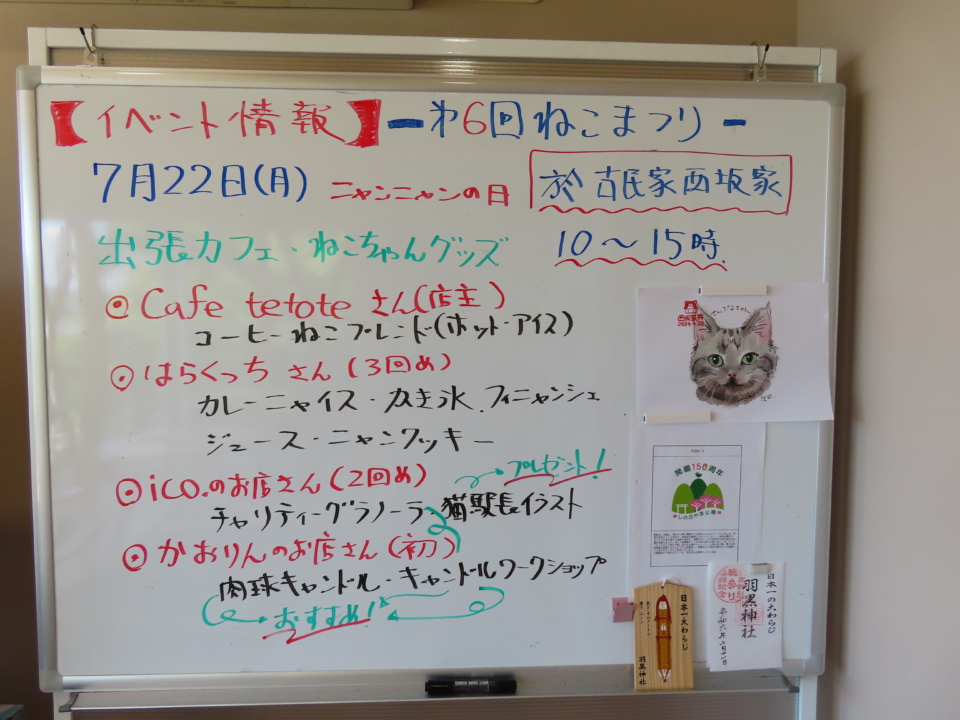 【イベント情報】ー 第6回ねこまつり ー
7月22日(月) ニャンニャンの日
於 古民家西坂家
出張カフェ・ねこちゃんグッズ
10〜15時
◎Cafe tetote さん(店主)
コーヒーねこブレンド(ホット・アイス)
◎はらくっち さん(3回め)
カレーニャイス・かき氷・フィニャンシェ
ジュース・ニャンクッキー
◎ico.のお店さん(2回め)
プレゼント!
チャリティーグラノーラ・猫駅長イラスト
◎かおりんのお店さん(初)
肉球キャンドル・キャンドルワークショップ
おすすめ!
開園150周年
日本一大わらじ
羽黒神社
日本一の大わらじ
羽黒神社